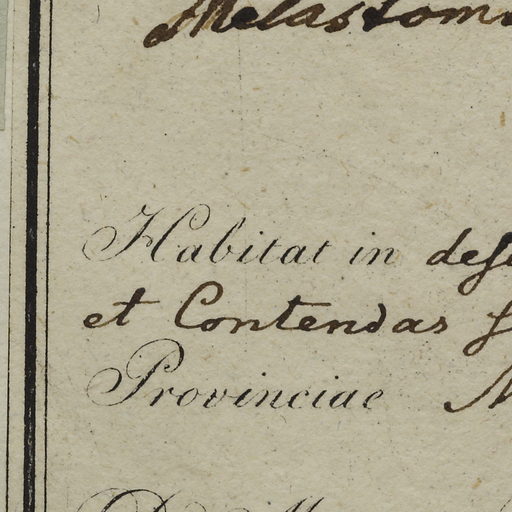 Melastom
Habitat in
et Contendas
Provinciae